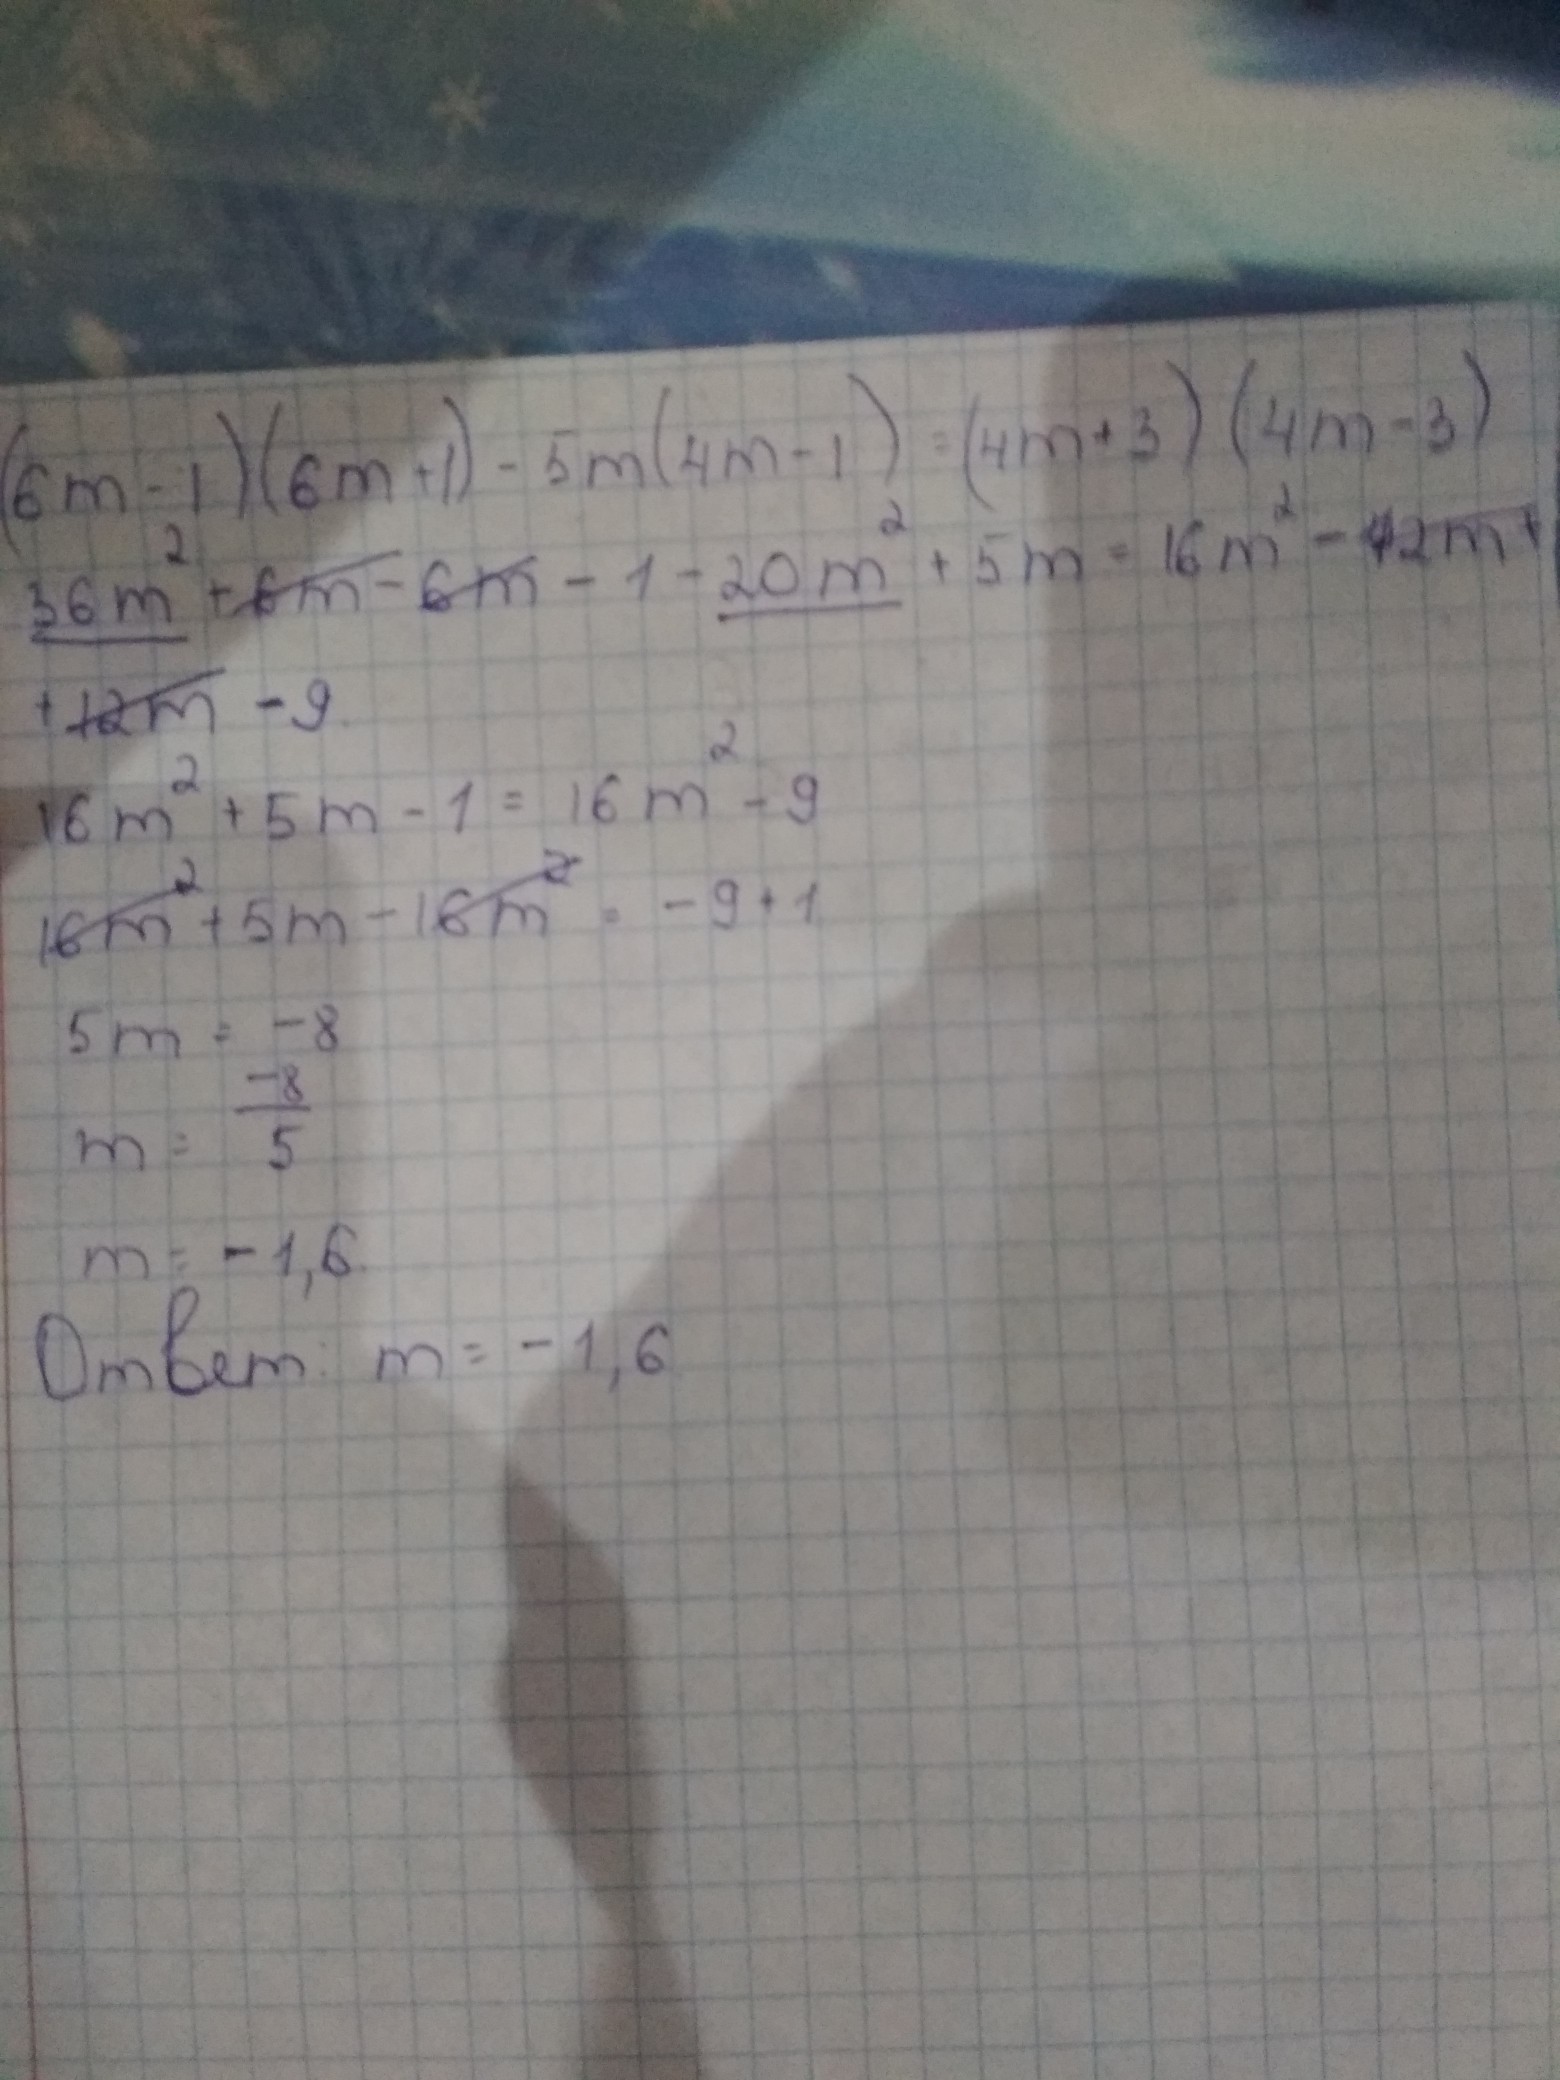 (6m-1)(6m+1)-5m(4m-1)=(4m+3)(4m-3)
36m²+6m-6m-1-20m²+5m=16m²-12m+
+12m-9
16m²+5m-1=16m²-9
16m²+5m-16m²=-9+1
5m=-8
m=-8/5
m=-1,6
Ответ: m=-1,6